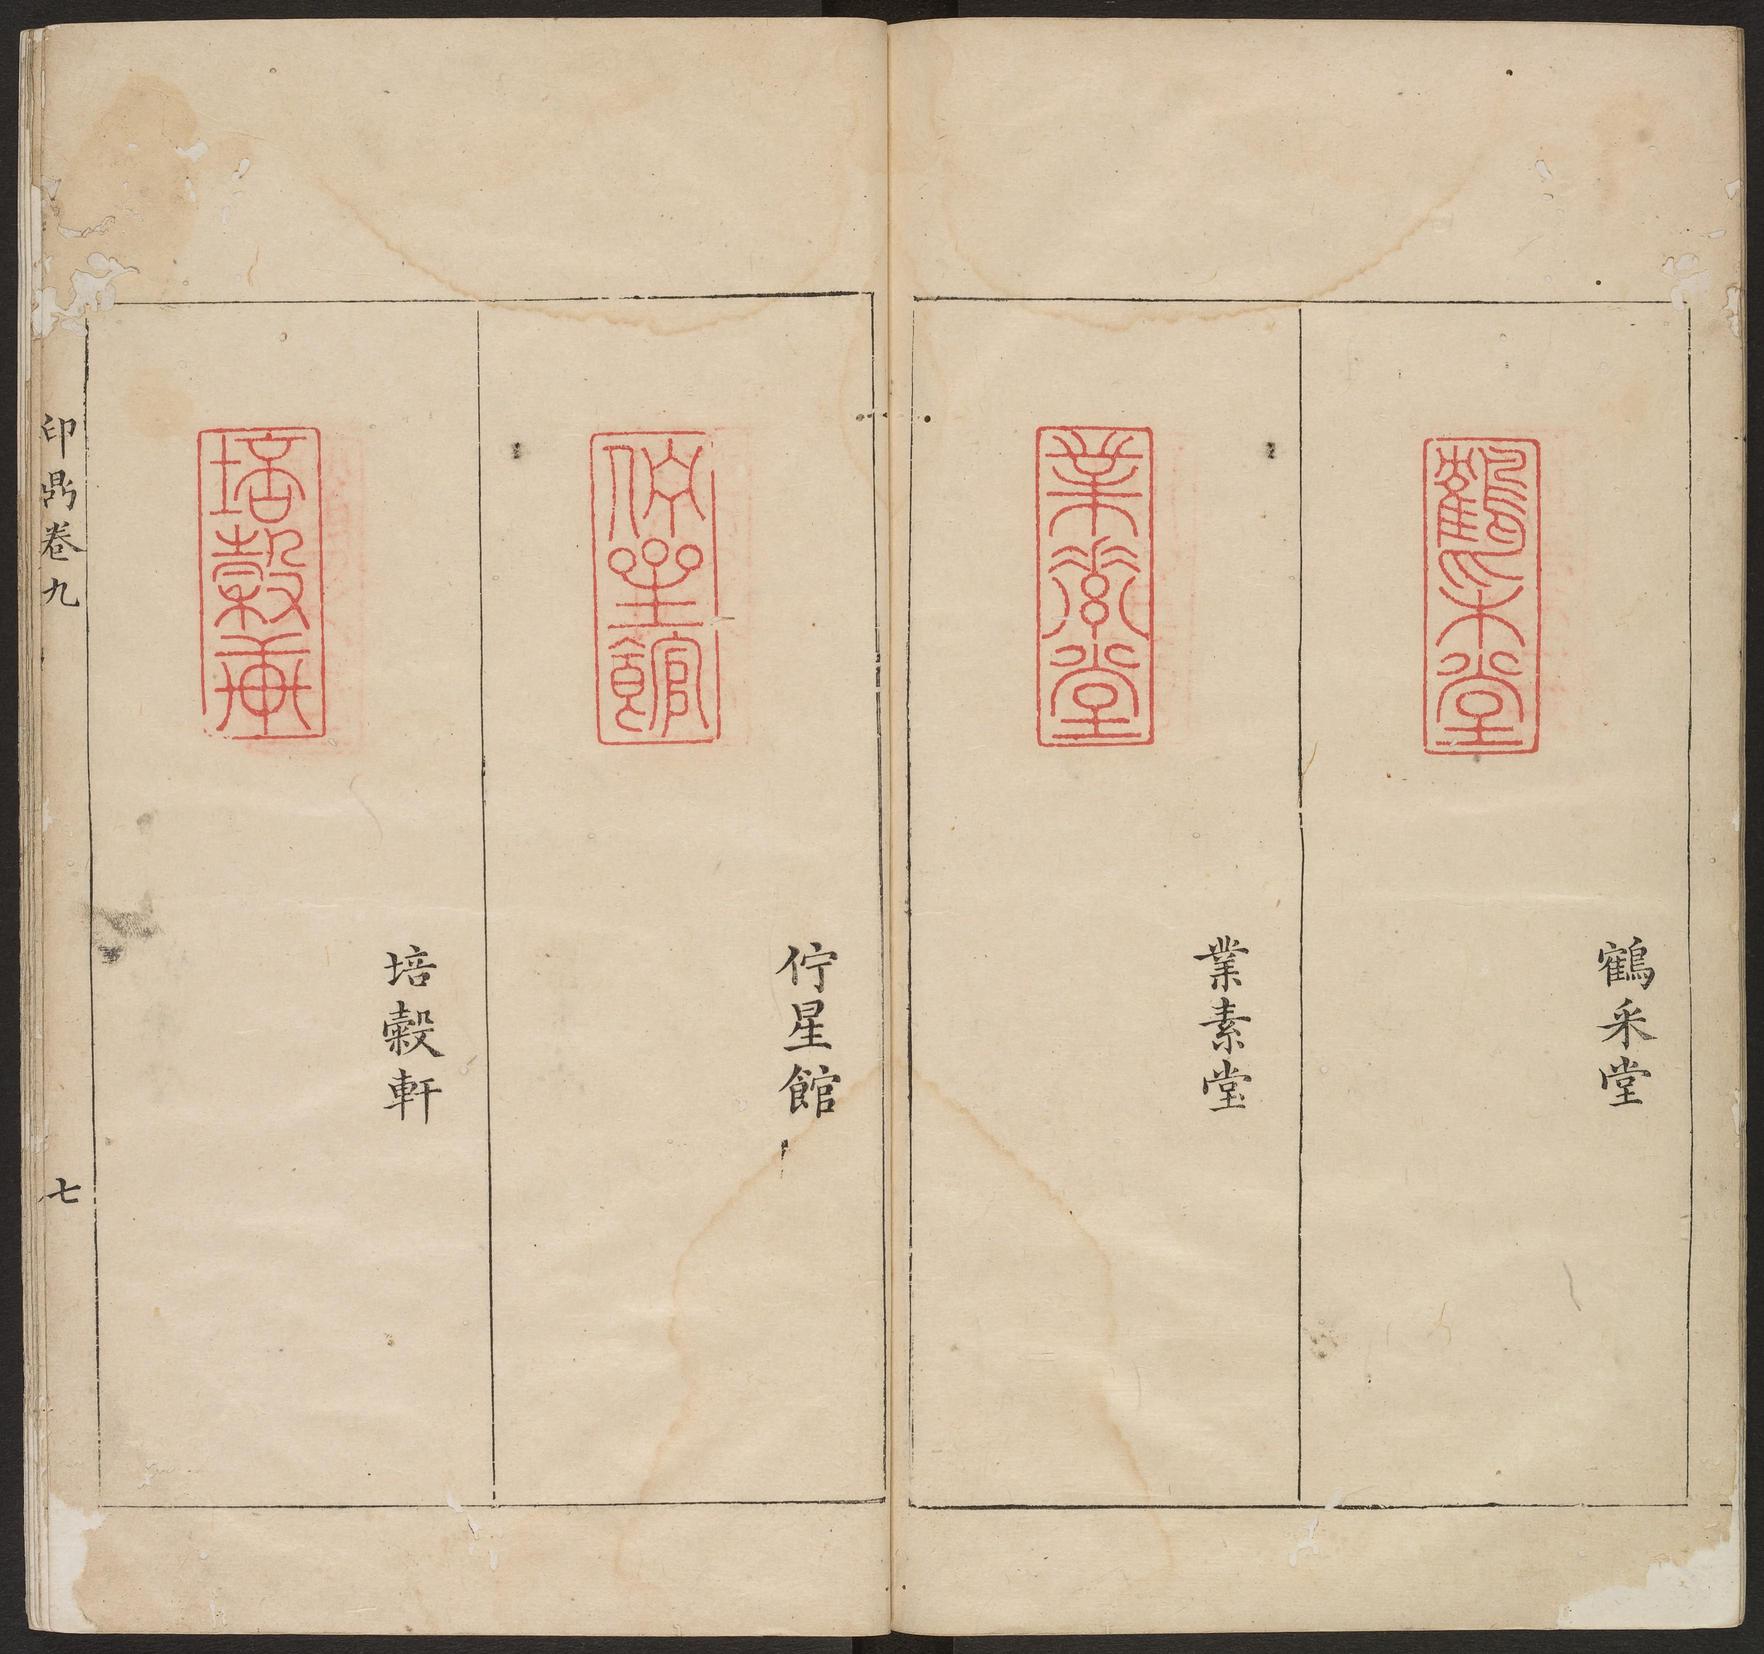 鶴采堂
鶴采堂
業素堂
業素堂
佇星館
佇星館
培穀軒
培穀軒
印鼎卷九
七